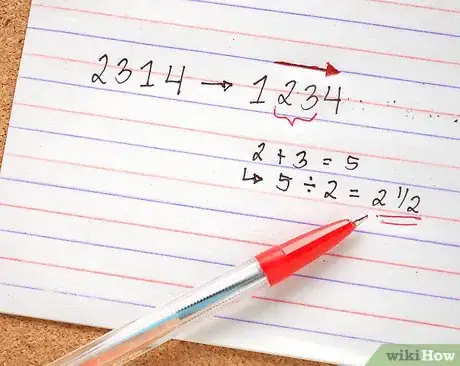 2314 → 1234
2 + 3 = 5
↳ 5 ÷ 2 = 2 1/2
wikiHow